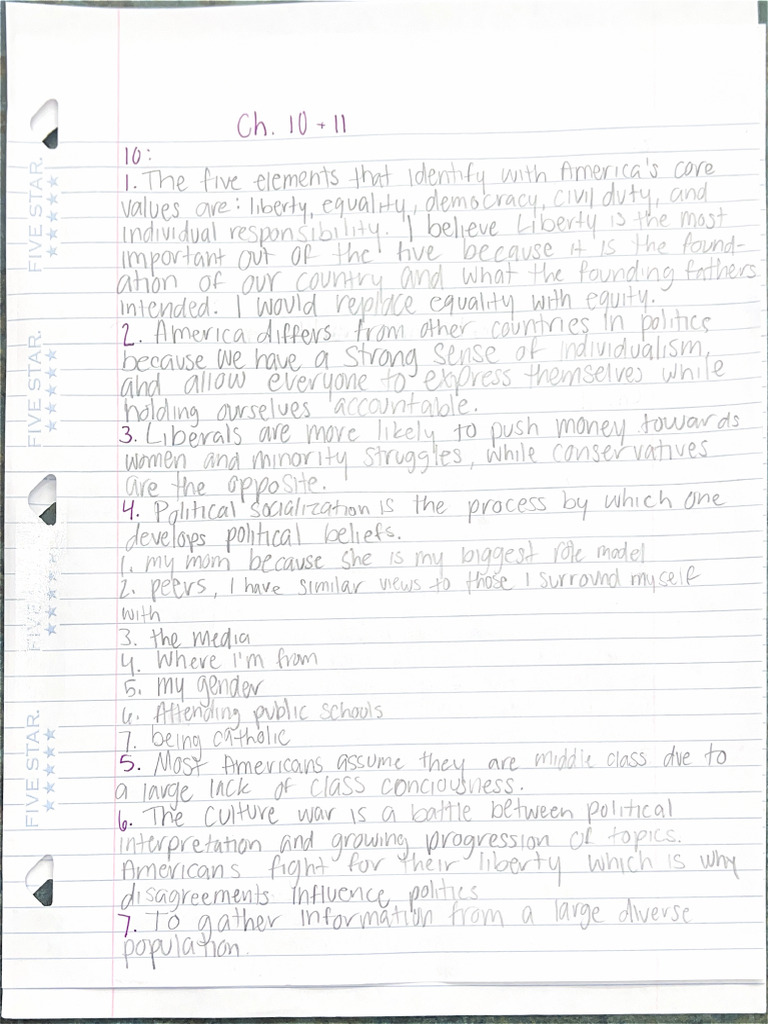 Ch. 10 + 11
10:
1. The five elements that identify with America's core
values are: liberty, equality, democracy, civil duty, and
individual responsibility. I believe Liberty is the most
important out of the five because it is the found-
ation of our country and what the founding fathers
intended. I would replace equality with equity.
2. America differs from other countries in politics
because we have a strong sense of individualism,
and allow everyone to express themselves while
holding ourselves accountable.
3. Liberals are more likely to push money towards
women and minority struggles, while conservatives
are the opposite.
4. Political socialization is the process by which one
develops political beliefs.
1. my mom because she is my biggest role model
2. peers, I have similar views to those I surround myself
with
3. the media
4. Where I'm from
5. my gender
6. Attending public schools
7. being catholic
5. Most Americans assume they are middle class due to
a large lack of class conciousness.
6. The culture war is a battle between political
interpretation and growing progression of topics.
Americans fight for their liberty which is why
disagreements influence politics
7. To gather information from a large diverse
population.
FIVE STAR.
FIVE STAR.
FIVE
FIVE STAR.